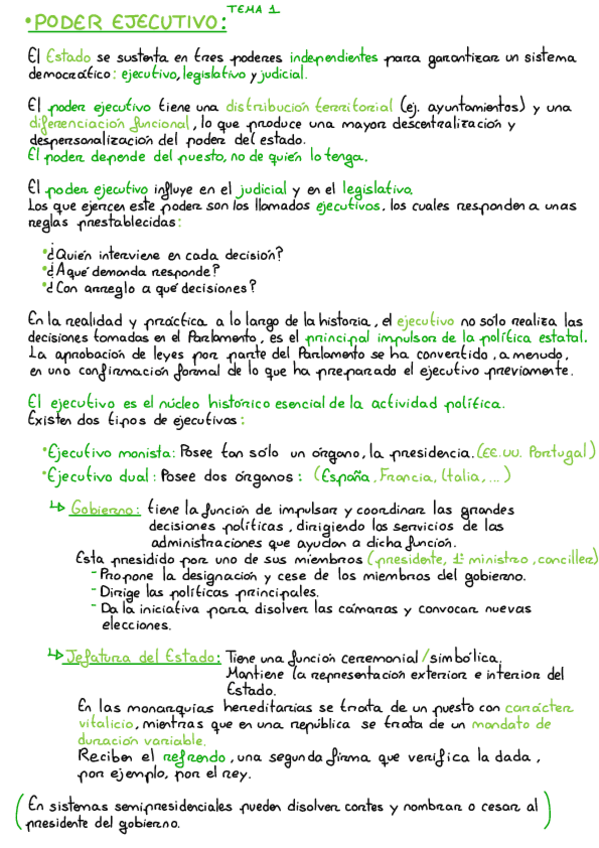 TEMA 1
•PODER EJECUTIVO:
El Estado se sustenta en tres poderes independientes para garantizar un sistema
democrático: ejecutivo, legislativo y judicial.
El poder ejecutivo tiene una distribución territorial (ej. ayuntamientos) y una
diferenciación funcional, lo que produce una mayor descentralización y
despersonalización del poder del estado.
El poder depende del puesto, no de quién lo tenga.
El poder ejecutivo influye en el judicial y en el legislativo.
Los que ejercen este poder son los llamados ejecutivos, los cuales responden a unas
reglas prestablecidas:
•¿Quién interviene en cada decisión?
•¿A qué demanda responde?
•¿Con arreglo a qué decisiones?
En la realidad y práctica a lo largo de la historia, el ejecutivo no solo realiza las
decisiones tomadas en el Parlamento, es el principal impulsor de la política estatal.
La aprobación de leyes por parte del Parlamento se ha convertido, a menudo,
en una confirmación formal de lo que ha preparado el ejecutivo previamente.
El ejecutivo es el núcleo histórico esencial de la actividad política.
Existen dos tipos de ejecutivos:
•Ejecutivo monista: Posee tan sólo un órgano, la presidencia. (EE.UU. Portugal)
•Ejecutivo dual: Posee dos órganos: (España, Francia, Italia, ...)
↳ Gobierno: tiene la función de impulsar y coordinar las grandes
decisiones políticas, dirigiendo los servicios de las
administraciones que ayudan a dicha función.
Esta presidido por uno de sus miembros (presidente, 1º ministro, conciller)
- Propone la designación y cese de los miembros del gobierno.
- Dirige las políticas principales.
- Da la iniciativa para disolver las cámaras y convocar nuevas
elecciones.
↳ Jefatura del Estado: Tiene una función ceremonial/simbólica.
Mantiene la representación exterior e interior del
Estado.
En las monarquías hereditarias se trata de un puesto con carácter
vitalicio, mientras que en una república se trata de un mandato de
duración variable.
Reciben el refrendo, una segunda firma que verifica la dada,
por ejemplo, por el rey.
(En sistemas semipresidenciales pueden disolver cortes y nombrar o cesar al
presidente del gobierno.)